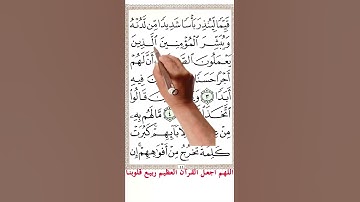 قَيِّمًا لِّيُنذِرَ بَأْسًا شَدِيدًا مِّن لَّدُنْهُ
وَيُبَشِّرَ الْمُؤْمِنِينَ الَّذِينَ
يَعْمَلُونَ أَنَّ لَهُمْ
أَجْرًا حَسَنًا فِيهِ
أَبَدًا ٣ قَالُوا
اتَّخَذَ ٤ مَّا لَهُم بِهِ
مِنْ لِآبَائِهِمْ كَبُرَتْ
كَلِمَةً تَخْرُجُ مِنْ أَفْوَاهِهِمْ إِن
اللهم اجعل القرآن العظيم ربيع قلوبنا